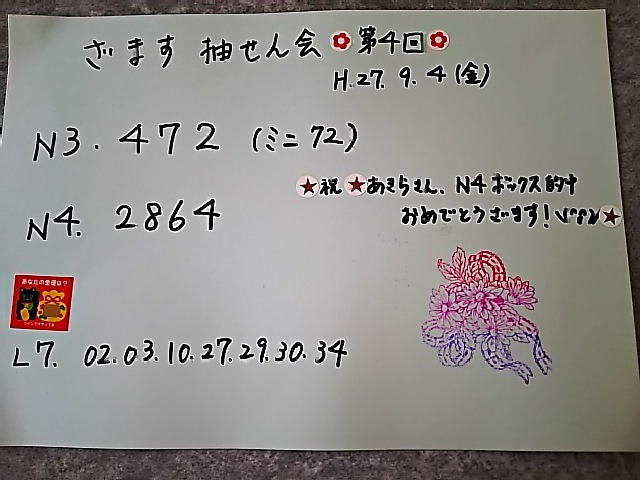 ざます 抽せん会 第4回
H.27.9.4(金)
N3. 472 (ミニ72)
祝 あきらさん、N4ボックス的中
おめでとうざます!
N4. 2864
あなたの金運は?
L7. 02.03.10.27.29.30.34